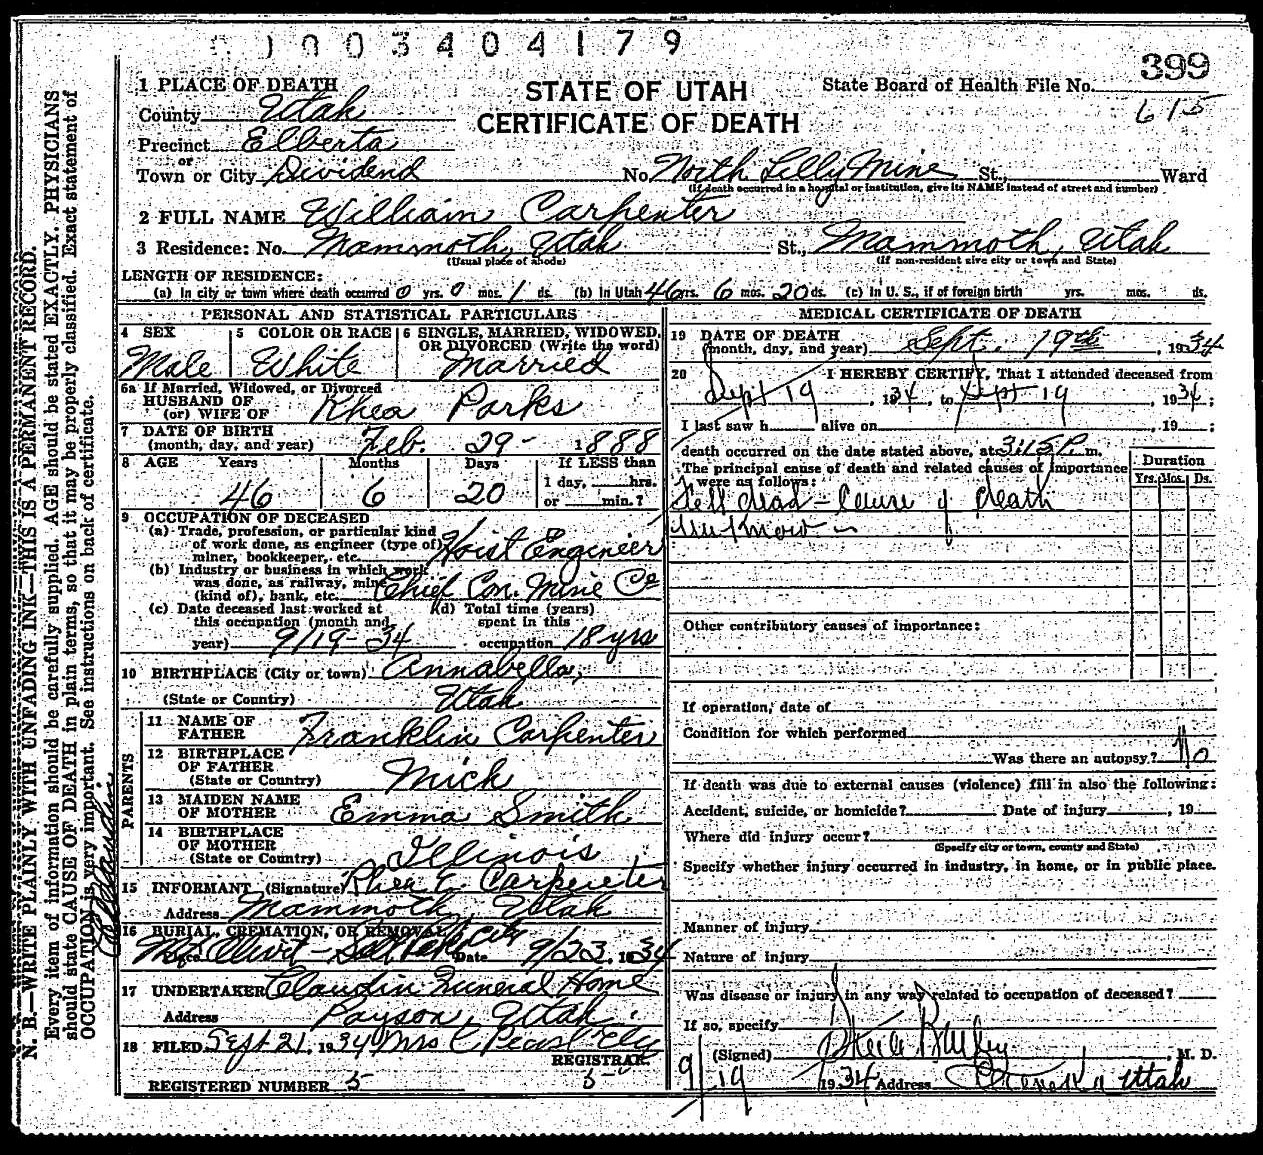 1003404179
399
1 PLACE OF DEATH
STATE OF UTAH
State Board of Health File No.
615
County Utah
CERTIFICATE OF DEATH
Precinct Elberta
or
Town or City Dividend No. North Lilly Mine St., Ward
(If death occurred in a hospital or institution, give its NAME instead of street and number)
2 FULL NAME William Carpenter
3 Residence: No. Mammoth, Utah St., Mammoth, Utah
(Usual place of abode) (If non-resident give city or town and State)
LENGTH OF RESIDENCE:
(a) In city or town where death occurred 0 yrs. 0 mos. 1 ds. (b) In Utah 46 yrs. 6 mos. 20 ds. (c) In U. S., if of foreign birth yrs. mos. ds.
PERSONAL AND STATISTICAL PARTICULARS
4 SEX Male
5 COLOR OR RACE White
6 SINGLE, MARRIED, WIDOWED, OR DIVORCED (Write the word) Married
6a If Married, Widowed, or Divorced
HUSBAND OF
(or) WIFE OF Rhea Parks
7 DATE OF BIRTH
(month, day, and year) Feb. 29- 1888
8 AGE Years Months Days If LESS than
46 6 20 1 day, hrs.
or min.?
9 OCCUPATION OF DECEASED
(a) Trade, profession, or particular kind
of work done, as engineer (type of)
miner, bookkeeper, etc. Hoist Engineer
(b) Industry or business in which work
was done, as railway, mine
(kind of), bank, etc. Chief Con. Mine Co
(c) Date deceased last worked at
this occupation (month and
year) 9/19-34
(d) Total time (years)
spent in this
occupation 18 yrs
10 BIRTHPLACE (City or town) Annabella,
(State or Country) Utah
PARENTS
11 NAME OF
FATHER Franklin Carpenter
12 BIRTHPLACE
OF FATHER
(State or Country) Mich
13 MAIDEN NAME
OF MOTHER Emma Smith
14 BIRTHPLACE
OF MOTHER
(State or Country) Illinois
15 INFORMANT (Signature) Rhea E. Carpenter
Address Mammoth, Utah
16 BURIAL, CREMATION, OR REMOVAL
Place Mt Olivet - Salt Lake City Date 9/23, 1934
17 UNDERTAKER Claudin Funeral Home
Address Payson, Utah.
18 FILED Sept 21, 1934 Mrs E Pearl Ely
REGISTRAR
REGISTERED NUMBER 5 5
MEDICAL CERTIFICATE OF DEATH
19 DATE OF DEATH
(month, day, and year) Sept. 19th, 1934
20 I HEREBY CERTIFY, That I attended deceased from
Sept 19, 1934, to Sept 19, 1934;
I last saw h alive on , 19 ;
death occurred on the date stated above, at 3:15 P. m.
The principal cause of death and related causes of importance
were as follows:
Duration
Yrs. Mos. Ds.
Fell dead - Cause of death
unknown
Other contributory causes of importance:
If operation, date of
Condition for which performed
Was there an autopsy? No
If death was due to external causes (violence) fill in also the following:
Accident, suicide, or homicide? Date of injury , 19
Where did injury occur?
(Specify city or town, county and State)
Specify whether injury occurred in industry, in home, or in public place.
Manner of injury
Nature of injury
Was disease or injury in any way related to occupation of deceased?
If so, specify
(Signed) Bailey, M. D.
9/19 1934 Address Eureka Utah
N. B.—WRITE PLAINLY WITH UNFADING INK—THIS IS A PERMANENT RECORD.
Every item of information should be carefully supplied. AGE should be stated EXACTLY. PHYSICIANS
should state CAUSE OF DEATH in plain terms, so that it may be properly classified. Exact statement of
OCCUPATION is very important. See instructions on back of certificate.